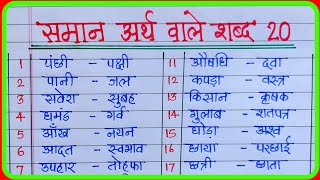 समान अर्थ वाले शब्द 20
1 पंछी - पक्षी 11 औषधि - दवा
2 पानी - जल 12 कपड़ा - वस्त्र
3 सवेरा - सुबह 13 किसान - कृषक
4 घमंड - गर्व 14 गुलाब - शतपत्र
5 आँख - नयन 15 घोड़ा - अश्व
6 आदत - स्वभाव 16 छाया - परछाई
7 उपहार - तोहफा 17 छत्री - छाता